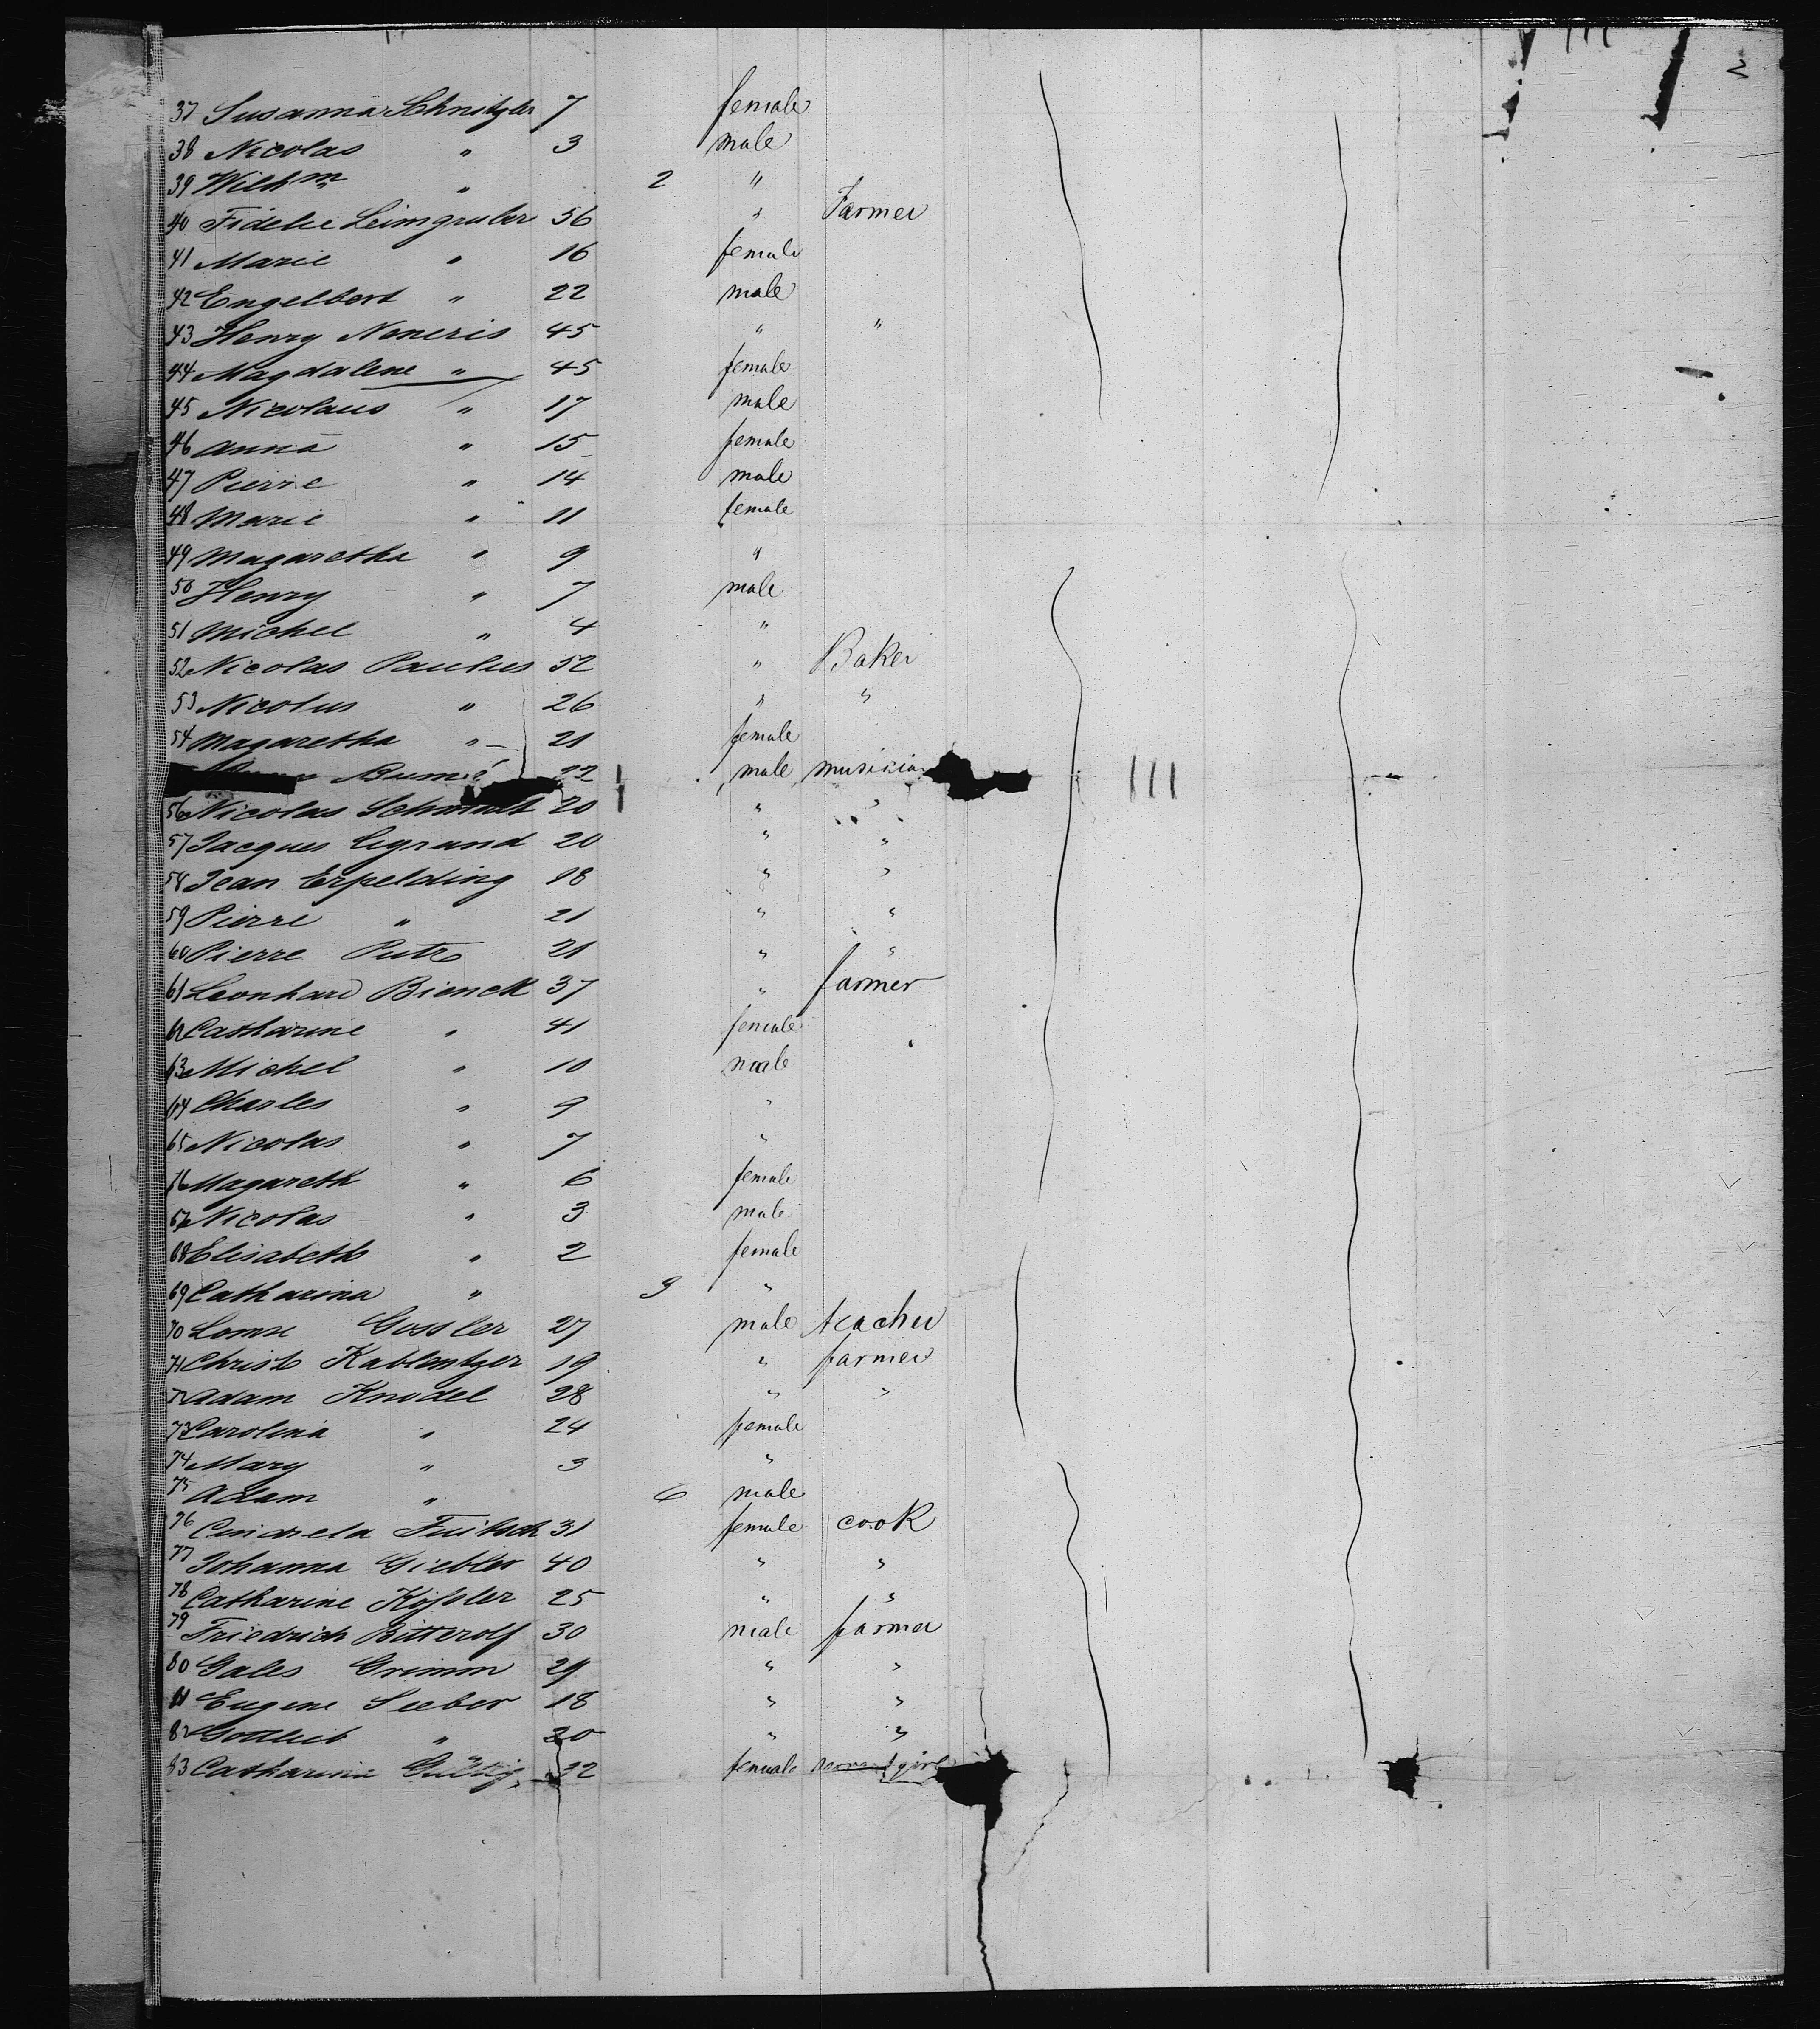 37 Susanna Schnitzler 7 female
38 Nicolas " 3 male
39 Wilhm " 2 "
40 Fidele Leimgruber 56 " Farmer
41 Marie " 16 female
42 Engelbert " 22 male
43 Henry Neneris 45 " "
44 Magdalene " 45 female
45 Nicolaus " 17 male
46 Anna " 15 female
47 Pierre " 14 male
48 Marie " 11 female
49 Magaretha " 9 "
50 Henry " 7 male
51 Michel " 4 "
52 Nicolas Paulus 52 " Baker
53 Nicolus " 26 " "
54 Magaretha " 21 female
22 male musician
56 Nicolas Schmidt 20 " "
57 Jacques Legrand 20 " "
58 Jean Erpelding 18 " "
59 Pierre " 21 " "
60 Pierre Putz 21 " "
61 Leonhard Bienck 37 " farmer
62 Catharine " 41 female
63 Michel " 10 male
64 Charles " 9 "
65 Nicolas " 7 "
66 Magareth " 6 female
67 Nicolas " 3 male
68 Elisabeth " 2 female
69 Catharina " 3 "
70 Gossler 27 male teacher
71 Christ Kablantzer 19 " farmer
72 Adam Knodel 28 " "
73 Carolina " 24 female
74 Mary " 3 "
75 Adam " 6 male
76 31 female cook
77 Johanna Giebler 40 " "
78 Catharine 25 " "
79 Friedrich Bitterolf 30 male farmer
80 Gales Grimm 29 " "
81 Eugene Seeber 18 " "
82 Gottlieb " 20 " "
83 Catharina 22 female servant girl